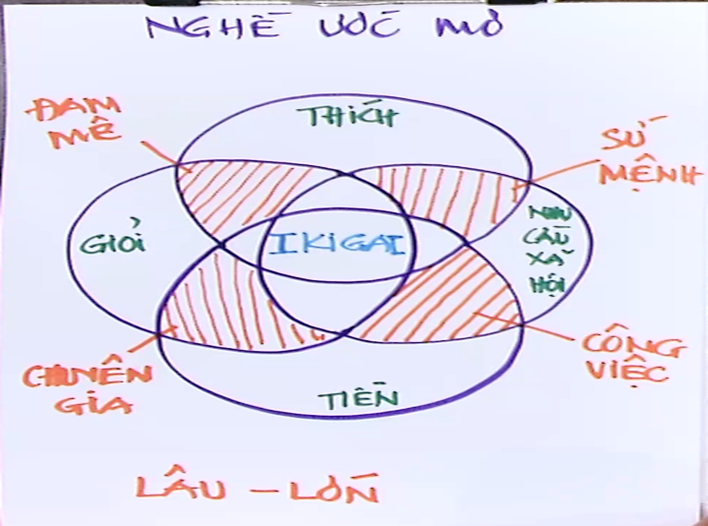 NGHỀ ƯỚC MƠ
THÍCH
ĐAM
MÊ
SỨ
MỆNH
GIỎI
IKIGAI
NHU
CẦU
XÃ
HỘI
CHUYÊN
GIA
TIỀN
CÔNG
VIỆC
LÂU - LỚN